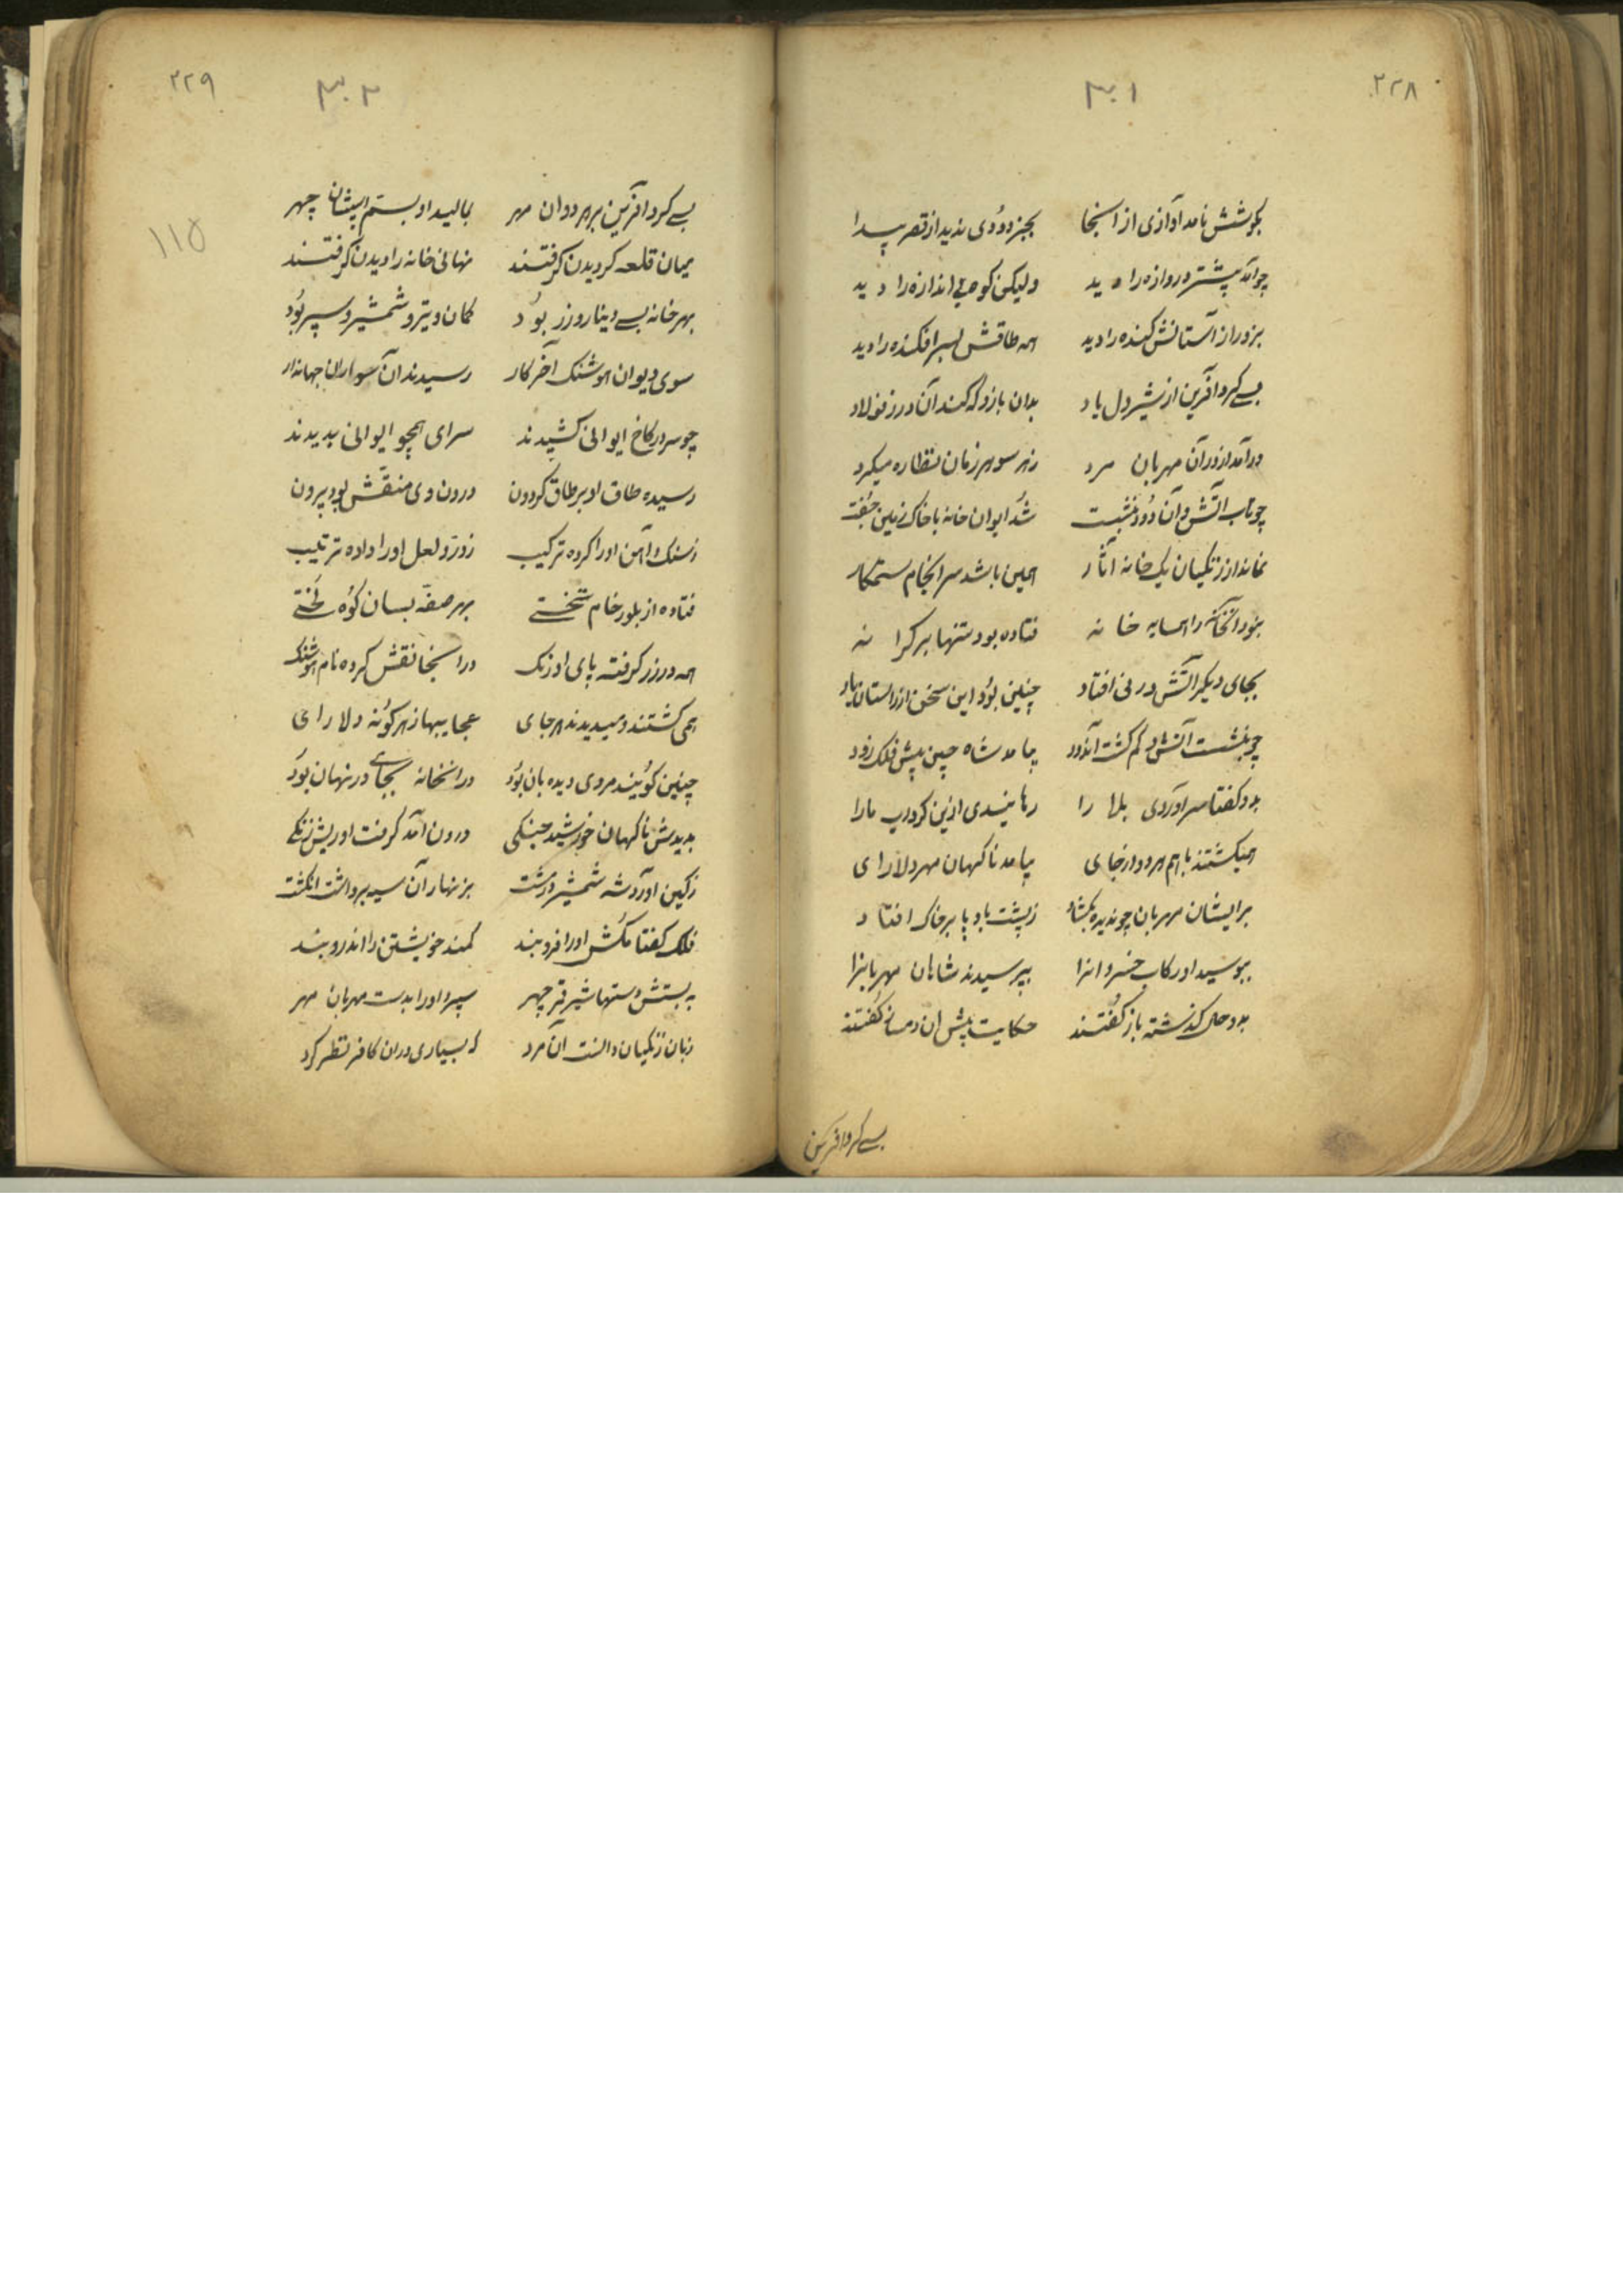 ۲۲۸
۳۰۱
بکوشش نامد آوازی از آنجا بجز دودی ندید از قصر پیدا
چو آمد پیشتر دروازه را دید ولیکن کوه بی اندازه را دید
بزور از آستانش کنده را دید همه طاقش بسر افکنده را دید
بسی کرد آفرین از شیردل یاد بدان بازو که کند آن در ز فولاد
درآمد از در آن مهربان مرد ز هر سو هر زمان نظاره میکرد
چو تاب آتش و آن دود بنشست شد ایوان خانه با خاک زمین
نماند از زنگیان یک خانه آثار همین باشد سرانجام ستمکار
بنود آنخانه را همسایه خانه فتاده بود تنها بر کرانه
بجای دیکر آتش در نی افتاد چنین بود این سخن از راستان یاد
چو بنشست آتش و کم کشت آندود بیامد شاه چین پیش فلک زود
بدو کفتا سر آوردی بلا را رهانیدی ازین کرداب ما را
همیکشتند باهم هر دو از جای بیامد ناکهان مهر دلارای
بر ایشان مهربان چو دیده بکشاد ز پشت بادپا بر خاک افتاد
ببوسید او رکاب خسروانرا بپرسیدند شاهان مهربانرا
بدو حال کذشته باز کفتند حکایت پیش آن دمساز کفتند
بسی کرد آفرین
۲۲۹
۳۰۲
۱۱۵
بسی کرد آفرین بر هر دوان مهر بمالید او بسم ایشان چهر
میان قلعه کردیدن کرفتند نهانی خانه را دیدن کرفتند
بهر خانه بسی دینار و زر بود کمان و تیر و شمشیر و سپر بود
سوی دیوان هوشنک آخر کار رسیدند آن سواران جهاندار
چو سر در کاخ ایوانی کشیدند سرای همچو ایوانی بدیدند
رسیده طاق او بر طاق کردون درون وی منقش بود بیرون
ز سنک و آهن او را کرده ترکیب ز در و لعل او را داده ترتیب
فتاده از بلور خام تختی بهر صفه بسان کوه لختی
همه در زر کرفته پای اورنک در آنجا نقش کرده نام هوشنک
همی کشتند و میدیدند هر جای عجایبها ز هر کونه دلارای
چنین کویند مردی دیده بان بود در آنخانه بجای در نهان بود
بدیدش ناکهان خورشید جنکی درون آمد کرفت او ریش زنکی
ز کین آورد شه شمشیر در مشت بزنهار آن سیه برداشت انکشت
فلک کفتا مکش او را فرو بند کمند خویشتن را اندرو بند
ببستش دستها شیر قمر چهر سپرد او را بدست مهربان مهر
زبان زنکیان دانست آن مرد که بسیاری در آن کافر نظر کرد